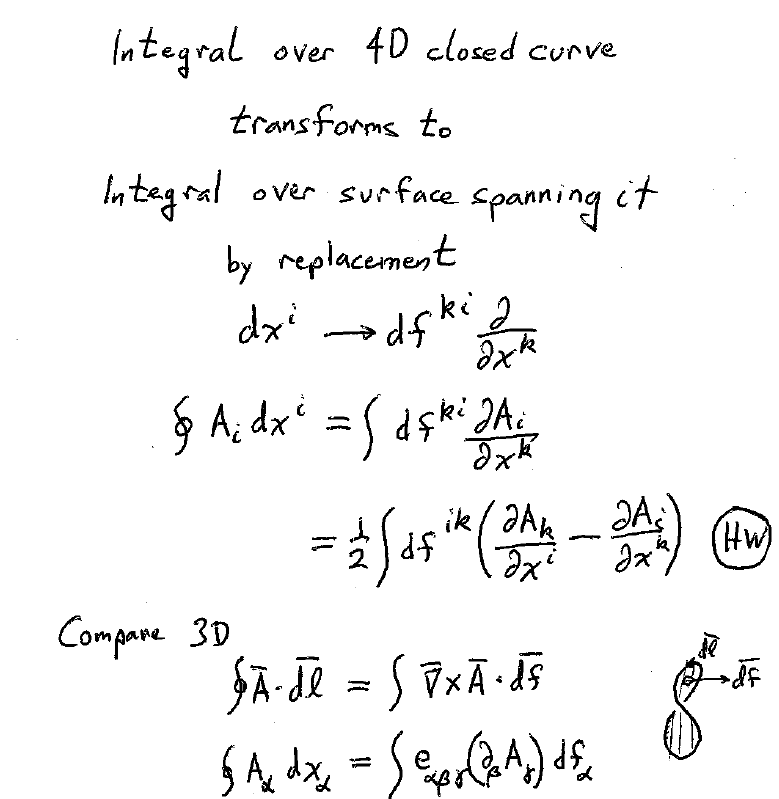 Integral over 4D closed curve
transforms to
Integral over surface spanning it
by replacement
dxⁱ → df^{ki} ∂/∂x^k
∮ A_i dxⁱ = ∫ df^{ki} ∂A_i/∂x^k
= 1/2 ∫ df^{ik} (∂A_k/∂xⁱ − ∂A_i/∂x^k) HW
Compare 3D
∮ A̅ · d̅l̅ = ∫ ∇̅ × A̅ · d̅f̅
d̅l̅
d̅f̅
∮ A_α dx_α = ∫ e_{αβγ} (∂_β A_γ) df_α